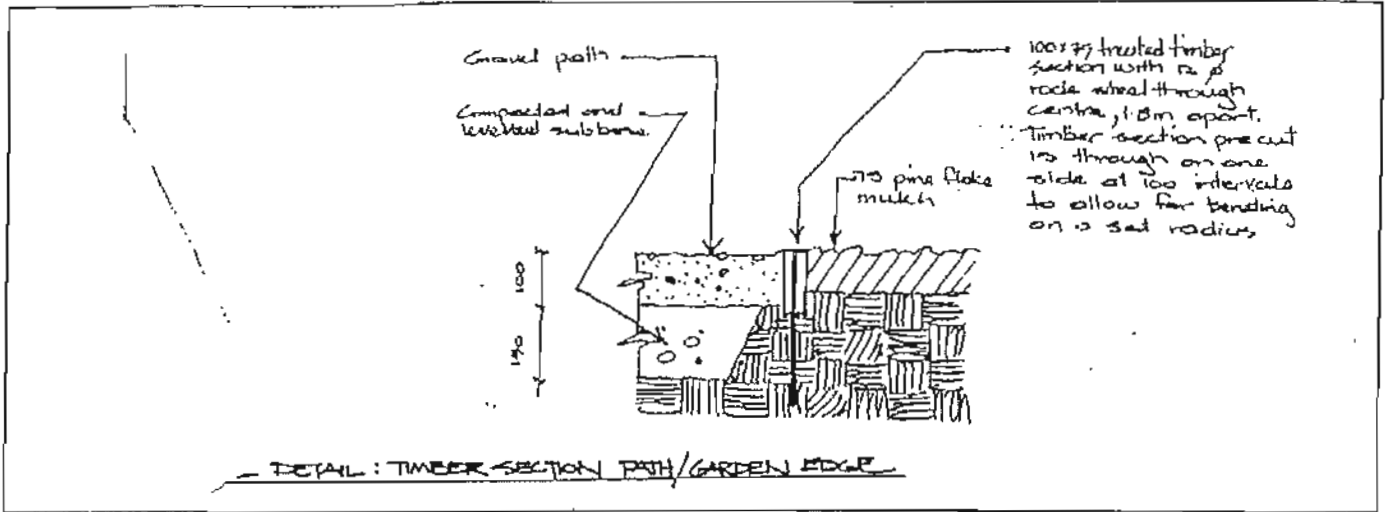 Gravel path
Compacted and
levelled subbase
100x75 treated timber
section with 12 ø
rods through
centre, 1.8m apart.
Timber section precut
through on one
side at 100 intervals
to allow for bending
on a set radius
75 pine flake
mulch
100
150
DETAIL : TIMBER SECTION PATH/GARDEN EDGE